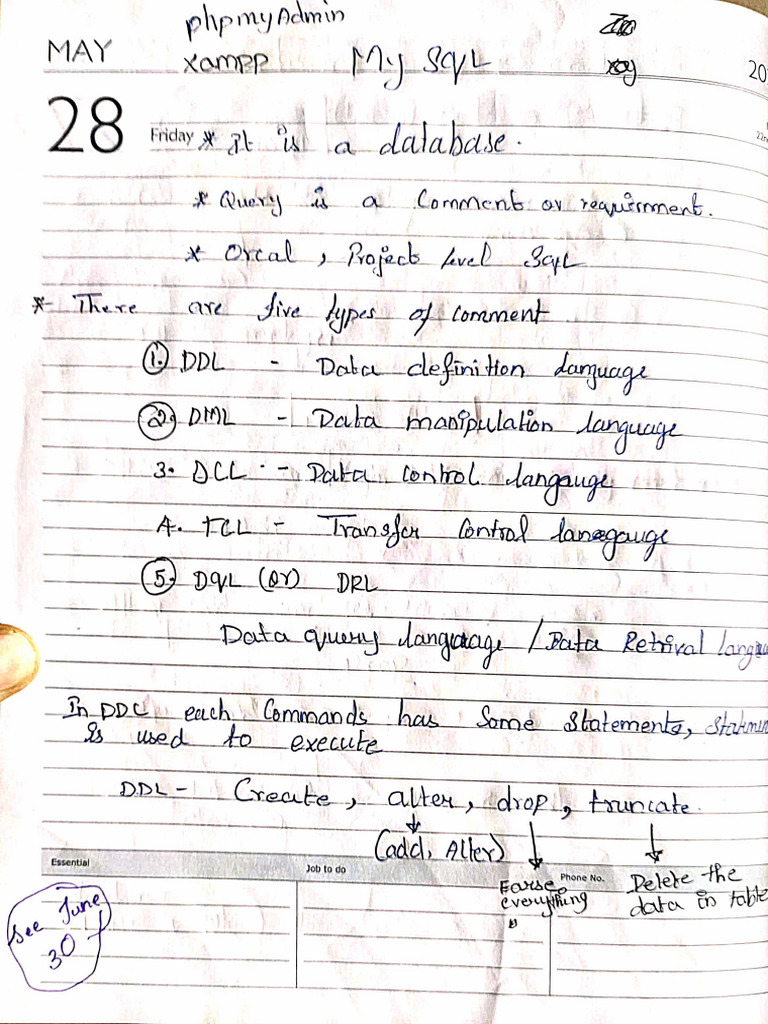 phpmyAdmin
MAY xampp My SQL 20
28 Friday * It is a database.
* Query is a Comment or requirnment.
* Orcal, Project level SqL
* There are five types of comment
1. DDL - Data definition language
2. DML - Data manipulation language
3. DCL - Data control langauge
4. TCL - Transfer control langauge
5. DQL (or) DRL
Data query language / Data Retrival
In DDL each Commands has Some Statements,
is used to execute
DDL - Create, alter, drop, truncate.
(add, Alter)
Essential Job to do Phone No.
Earse everything
Delete the data in table
See June 30